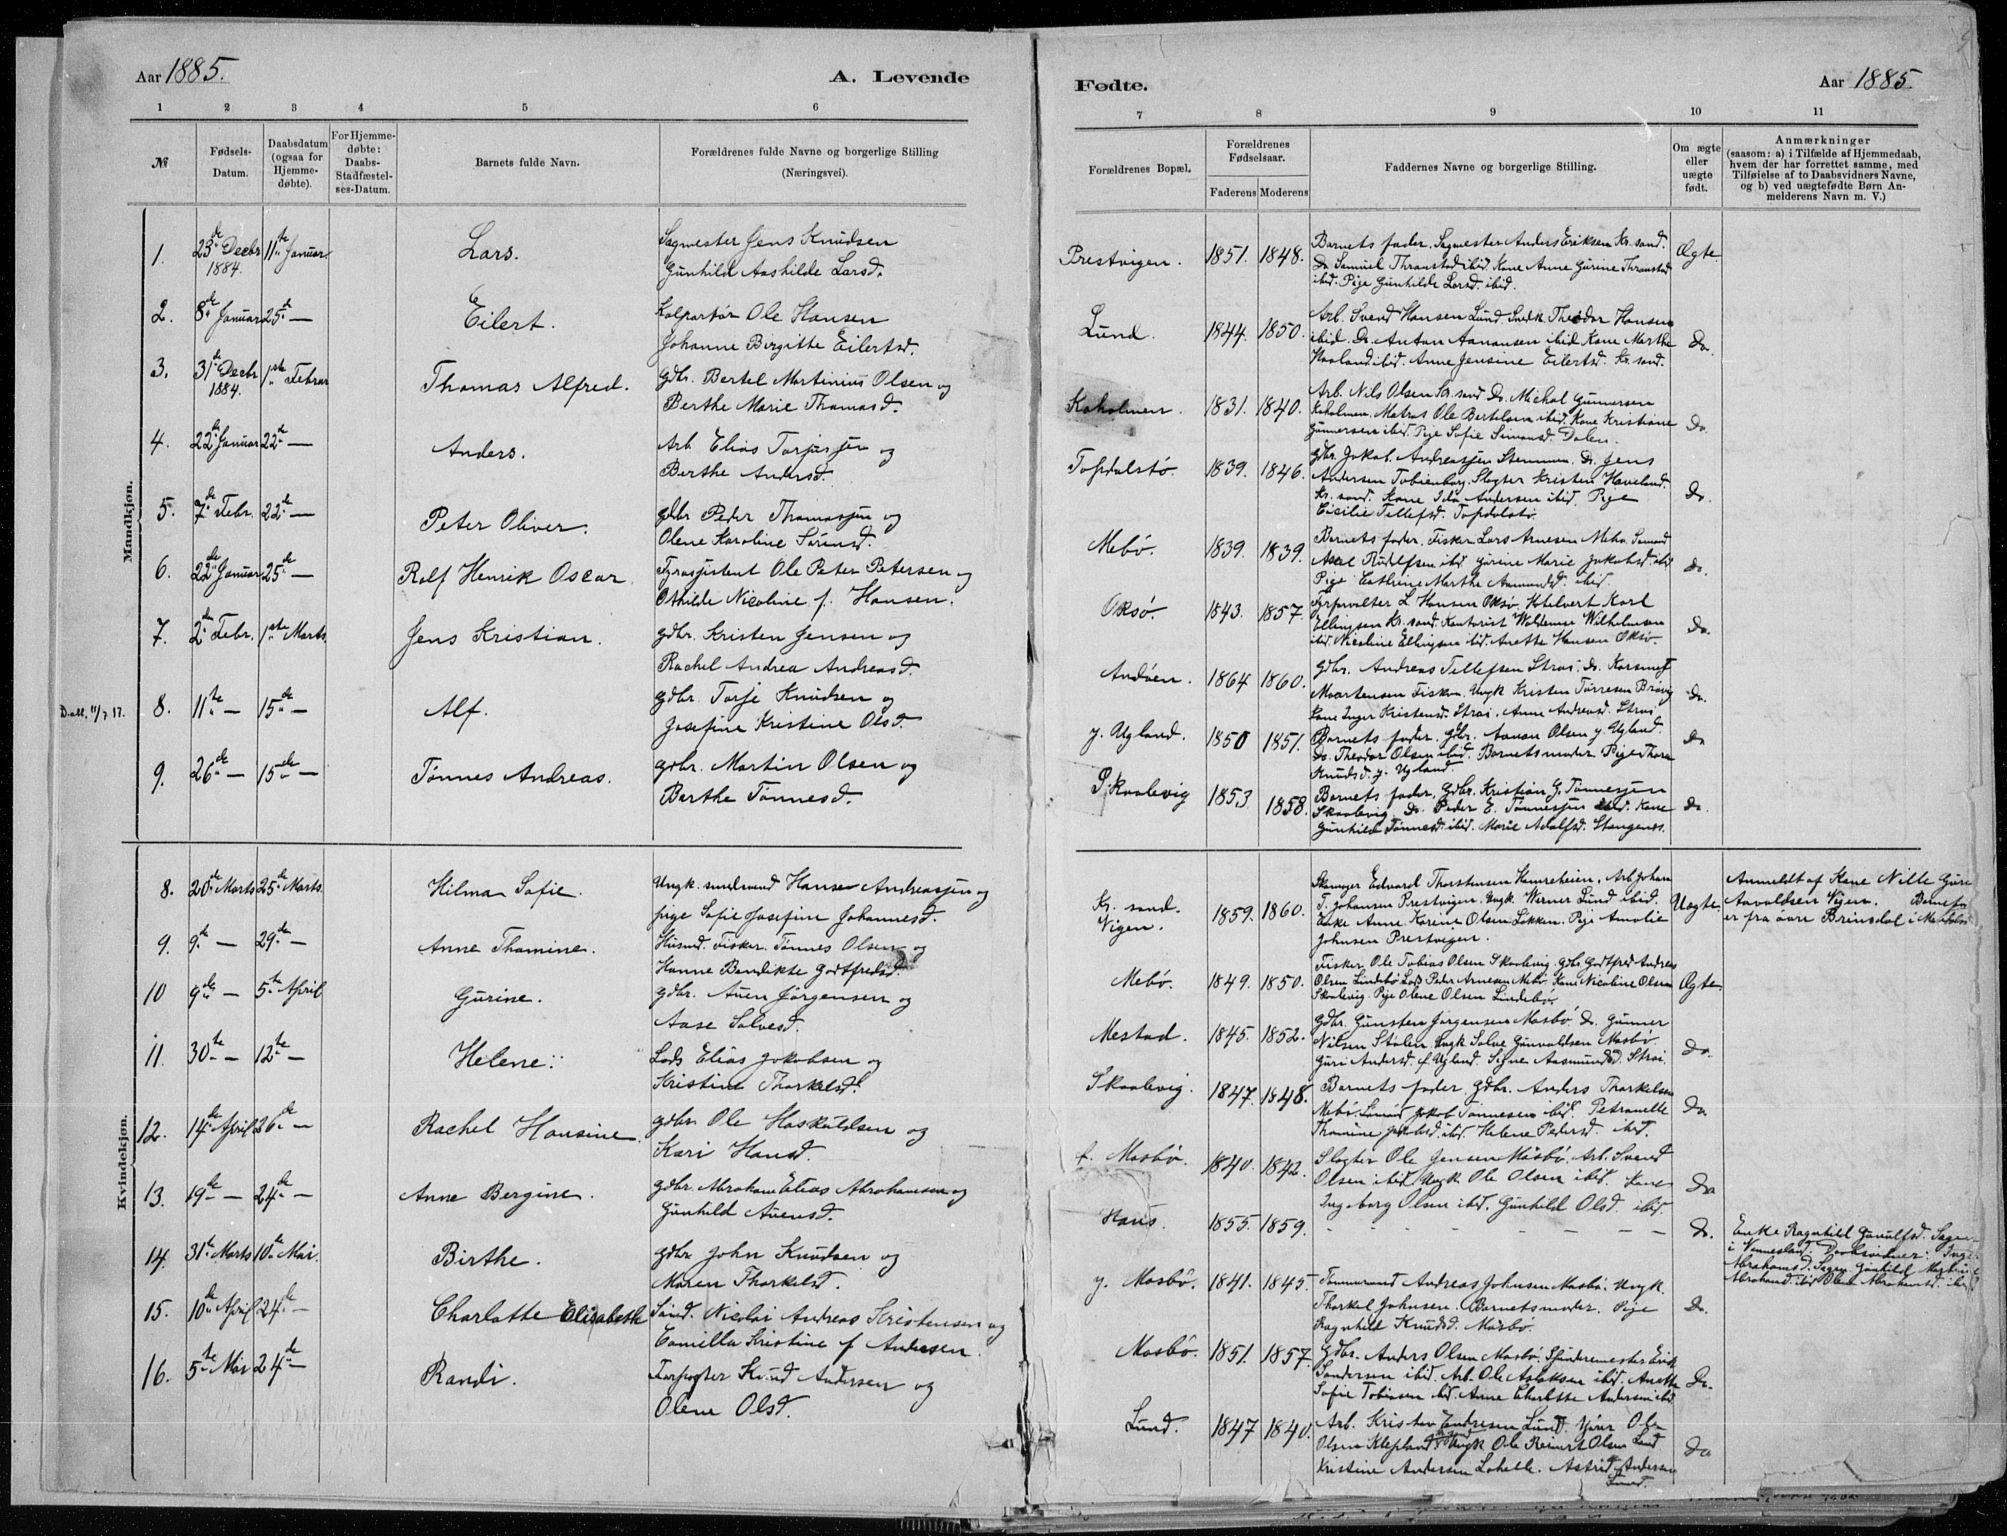 Aar 1885.
A. Levende
1 2 3 4 5 6
№
Fødsels-
Datum.
Daabsdatum
(ogsaa for
Hjemme-
døbte).
For Hjemme-
døbte:
Daabs-
Stadfæstel-
ses-Datum.
Barnets fulde Navn.
Forældrenes fulde Navne og borgerlige Stilling
(Næringsvei).
Mandkjøn.
1. 23de Decbr 1884. 11te Januar Lars. Sagmester Jens Knudsen
Gunhild Aashilde Larsd.
2. 8de Januar 25de — Eilert. Kolportør Ole Hansen
Johanne Birgitte Eilertsd.
3. 31te Decbr 1884. 1ste Februar Thomas Alfred. gdbr. Bertel Martinius Olsen og
Berthe Marie Thomasd.
4. 22de Januar 22de — Anders. Arb. Elias Torjusjen og
Berthe Andersd.
5. 7de Febr. 22de — Peter Oliver. gdbr Peder Thomasjen og
Olene Karoline Sørensd.
6. 22de Januar 25de — Rolf Henrik Oscar. Fyrasjistent Ole Peter Petersen og
Othilde Nicoline f. Hansen.
7. 2den Febr. 1ste Marts. Jens Kristian. gdbr. Kristen Jensen og
Rachel Andrea Andreasd.
Døll. 11/7 17. 8. 11te — 15de — Alf. gdbr. Torje Knudsen og
Josefine Kristine Olsd.
9. 26de — 15de — Tønnes Andreas. gdbr. Martin Olsen og
Barthe Tønnesd.
Kvindekjøn.
8. 20de Marts 25de Marts. Hilma Sofie. Ungk. Hansen Andreasjen og
pige Sofie Josefine Johannesd.
9. 9de — 29de — Anne Thomine. Husmd. Fisker. Tønnes Olsen og
Hanne Bendikte Godtfredsd.
10 9de — 5te April Gurine. gdbr. Auen Jørgensen og
Aase Salvesd.
11. 30te — 12te — Helene. Lods Elias Jakobsen og
Kristine Thorkelsd.
12. 14de April 26de — Rachel Hansine. gdbr. Ole Haskuldsen og
Kari Hansd.
13. 19de — 24de — Anne Bergine. gdbr. Abraham Elias Abrahamsen og
Gunhild Auensd.
14. 31te Marts 10de Mai. Birthe. gdbr. John Knudsen og
Maren Thorkelsd.
15. 10de April 24de — Charlotte Elisabeth Smd. Nicolai Andreas Kristensen og
Camilla Kristine f Andersen.
16. 5te Mai 24de — Randi. Knud Andersen og
Olene Olsd.
Fødte.
Aar 1885.
7 8 9 10 11
Forældrenes Bopæl.
Forældrenes
Fødselsaar.
Faderens Moderens
Faddernes Navne og borgerlige Stilling.
Om ægte
eller
uægte
født.
Anmærkninger
(saasom: a) i Tilfælde af Hjemmedaab,
hvem der har forrettet samme, med
Tilføielse af to Daabsvidners Navne,
og b) ved uægtefødte Børn An-
melderens Navn m. V.)
Prestvigen. 1851. 1848. Barnets fader. Sagmester Anders Eriksen Kr. sand. Ægte.
Do Samuel Thranstad ibid. Kone Anne Gurine Thranstad
ibid. Pige Gunhilde Larsd. ibid.
Lund. 1844. 1850. Arb. Svend Hansen Lund Theodor Hansen
ibid. Do. Anton Aanonsen ibid Kone Marthe Do.
Haaland ibid. Anne Jensine Eilertsd. Kr. sand.
Kaholmen. 1831. 1840. Arb. Nils Olsen Kr. sand Do. Michal Gunnersen
Kaholmen. Matros Ole Bertelsen ibid. Kone Kristiane Do.
Gunnersen ibid. Pige Sofie Simonsd. Dalen.
Topdalstø. 1839. 1846. gdbr. Jakob Andreasjen Do. Jens
Andersen Slagter Kristen Haveland. Do.
Kr. sand. Kone Ida Andersen ibid. Pige
Cicilie Tellefsd. Topdalstø.
Mebø. 1839. 1839. Barnets fader. Fisker Lars Arnesen Mebø.
Axel Rudolfsen ibid Gurine Marie Jakobsd. ibid Do.
Pige Cathrine Marthe Aamundsd. ibid.
Oksø. 1843. 1857. Fyrforvalter L Hansen Oksø. Karl
Ellingsen Kr. sand. Kontorist Waldemar Wilhelmsen Do.
ibid. Nicoline Ellingsen ibid. Anette Hansen Oksø.
Andøen. 1864 1860. gdbr. Andreas Tellefsen Strai. Do.
Maartensen Fisker. Ungk Kristen Tørresen Do.
Kone Inger Kristensd. Strai. Anne Andreasd. Strai
y. Ugland. 1850 1851. Barnets fader. Gdbr. Aanon Olsen y. Ugland. Do
Do. Theodor Olsen ibid. Barnets moder. Pige Thora
Knudsd. y. Ugland.
Skaalevig 1853 1858. Barnets fader. gdbr. Kristian G. Tønnesjen
Skaalevig. Do. Peder E. Tønnesjen ibid. Kone Do.
Gunhild Tønnesd. ibid. Marie Adolfsd. Stangenes.
Kr. sand.
Vigen. 1859. 1860. Edvard Thorstensen Hamreheien. Arb. Johan
T. Johansen Prestvigen. Ungk Werner Lund ibid. Uægte.
Enke Anne Karine Olsen Løkken. Pige Amalie
Johnsen Prestvigen.
Anmeldt af Kone Nille Guri
Aavoldsen Vigen.
er fra øvre Brinsdal i
Mebø. 1849. 1850. Fisker Ole Tobias Olsen Skaalevig. gdbr. Godtfred Andreas
Olsen Lindebø Lods Peder Arnesen Mebø. Kone Nicoline Olsen Ægte.
Skaalevig. Pige Olene Olsen Lindebø.
Mestad. 1845. 1852. Gdbr. Gunsten Jørgensen Mosbø. Do. Gunner
Nilsen Stølen. Ungk Salve Gunvaldsen Mosbø. Do.
Guri Andersd. f. Ugland. Signe Aasmundsd. Strai
Skaalevig. 1847. 1848. Barnets fader, gdbr. Anders Thorkelsen
Mebø. Jakob Tønnesen ibid. Petronelle Do.
Thomine Jakobsd. ibid. Helene Pedersd. ibid.
f. Mosbø. 1840. 1842. Slagter Ole Jensen Mosbø. Arb. Svend
Olsen ibid. Ungk Ole Olsen ibid. Kone Do
Ingeborg Olsen ibid. Gunhild Olsd. ibid
1855. 1859. — — — — Do.
Enke Ragnhild Gunulfsd.
i Vennesland. Daabsvidner:
Abrahamsd. Gunhild
ibid Olene Abrahamsd.
y. Mosbø. 1841. 1845. Tømmermd Andreas Johnsen Mosbø. Ungk.
Thorkel Johnsen. Barnets moder. Pige Do.
Ragnhild Knudsd. Mosbø.
Mosbø. 1851. 1857. Gdbr. Anders Olsen Mosbø. Spindemester Erik
Sandersen ibid. Arb. Ole Aslaksen ibid. Anette Do.
Sofie Tobiasen ibid. Anne Charlotte Andersen ibid
Lund. 1847 1840. Arb. Kristen Endresen Lund. Ole
Olsen Klepland Ungk Ole Reinert Olsen Lund Do
Kristine Andersen Lahelle. Astrid Andersen
Lund.